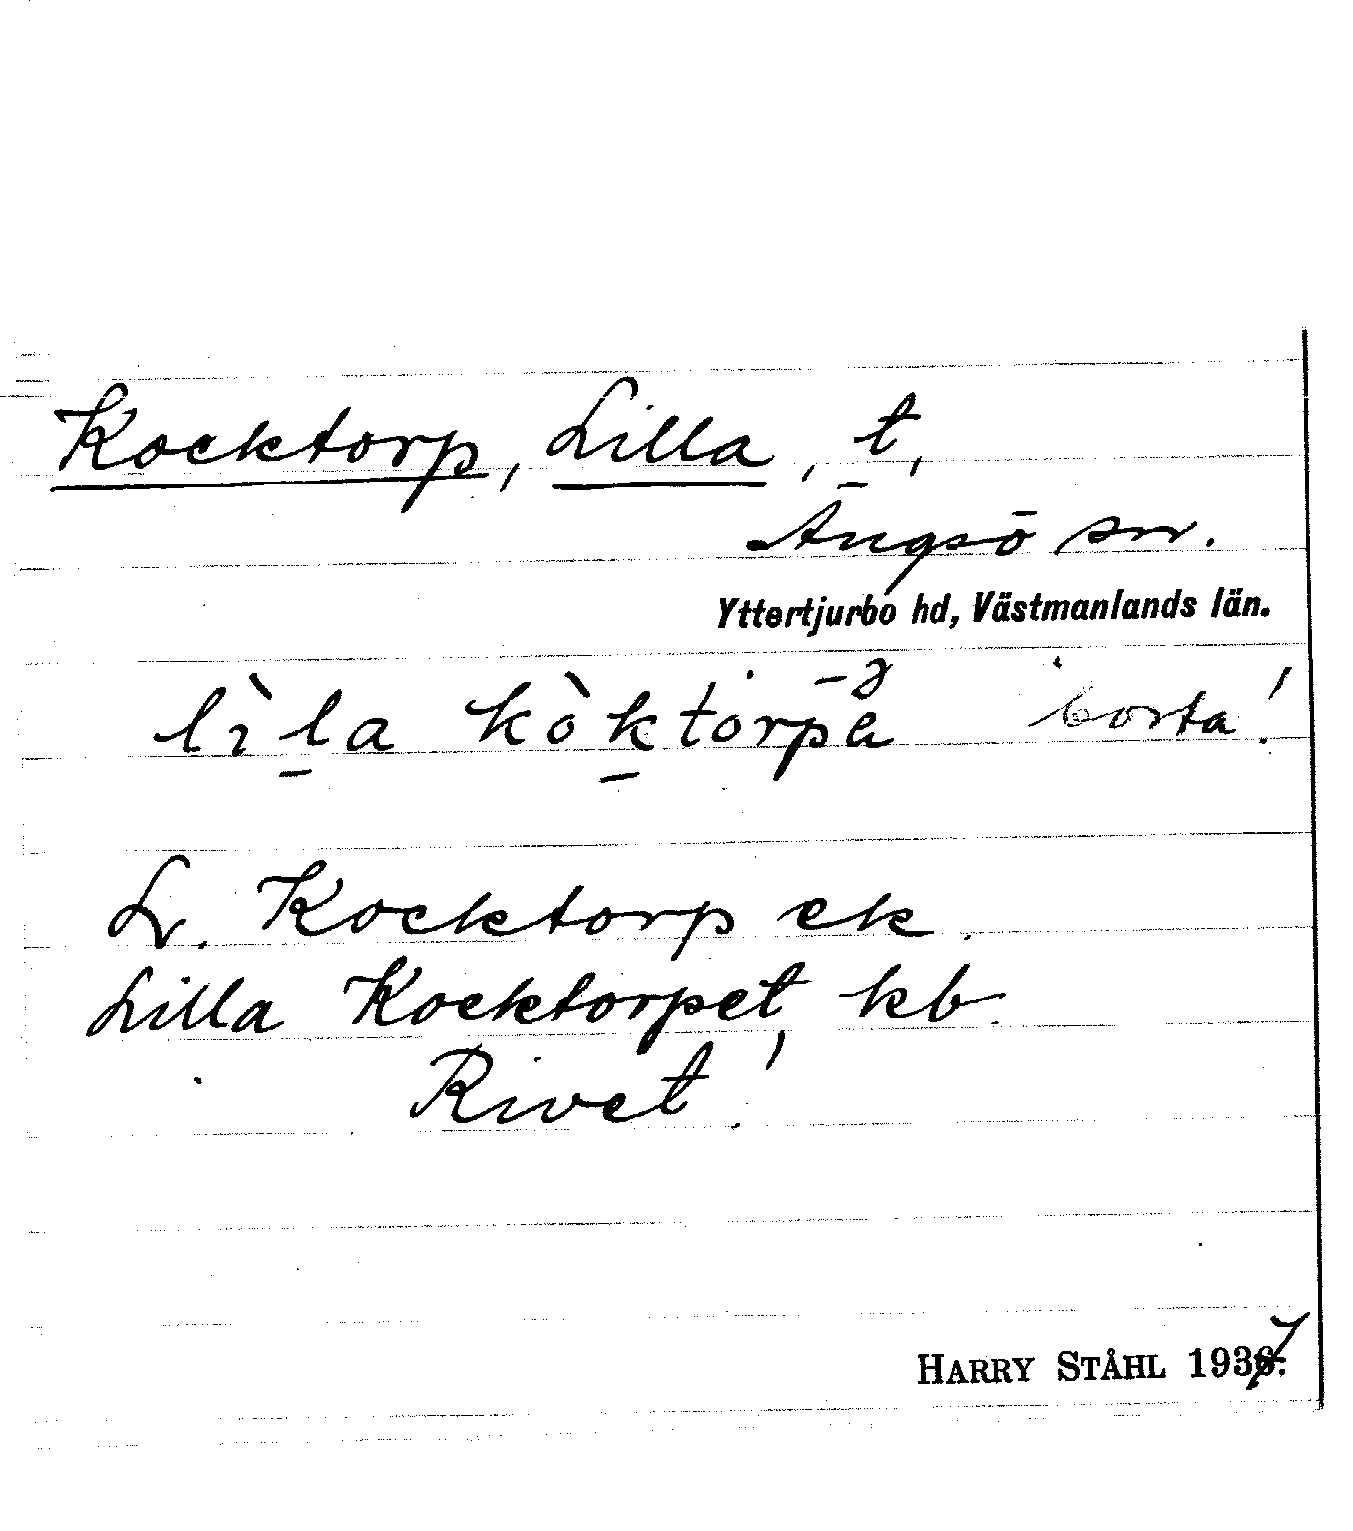 Kocktorp, Lilla, t,
Ängsö sn.
Yttertjurbo hd, Västmanlands län.
lìla kòktorpa -ə borta!
L. Kocktorp ek.
Lilla Kocktorpet, kb.
Rivet!
HARRY STÅHL 1937.